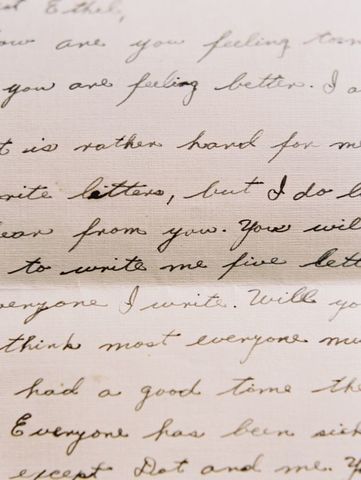 Ethel,
ow are you feeling tom
you are feeling better. I a
t is rather hard for me
rite letters, but I do l
ear from you. You wil
to write me five lett
veryone I write. Will yo
think most everyone mu
had a good time the
Everyone has been sick
except Dot and me. Y